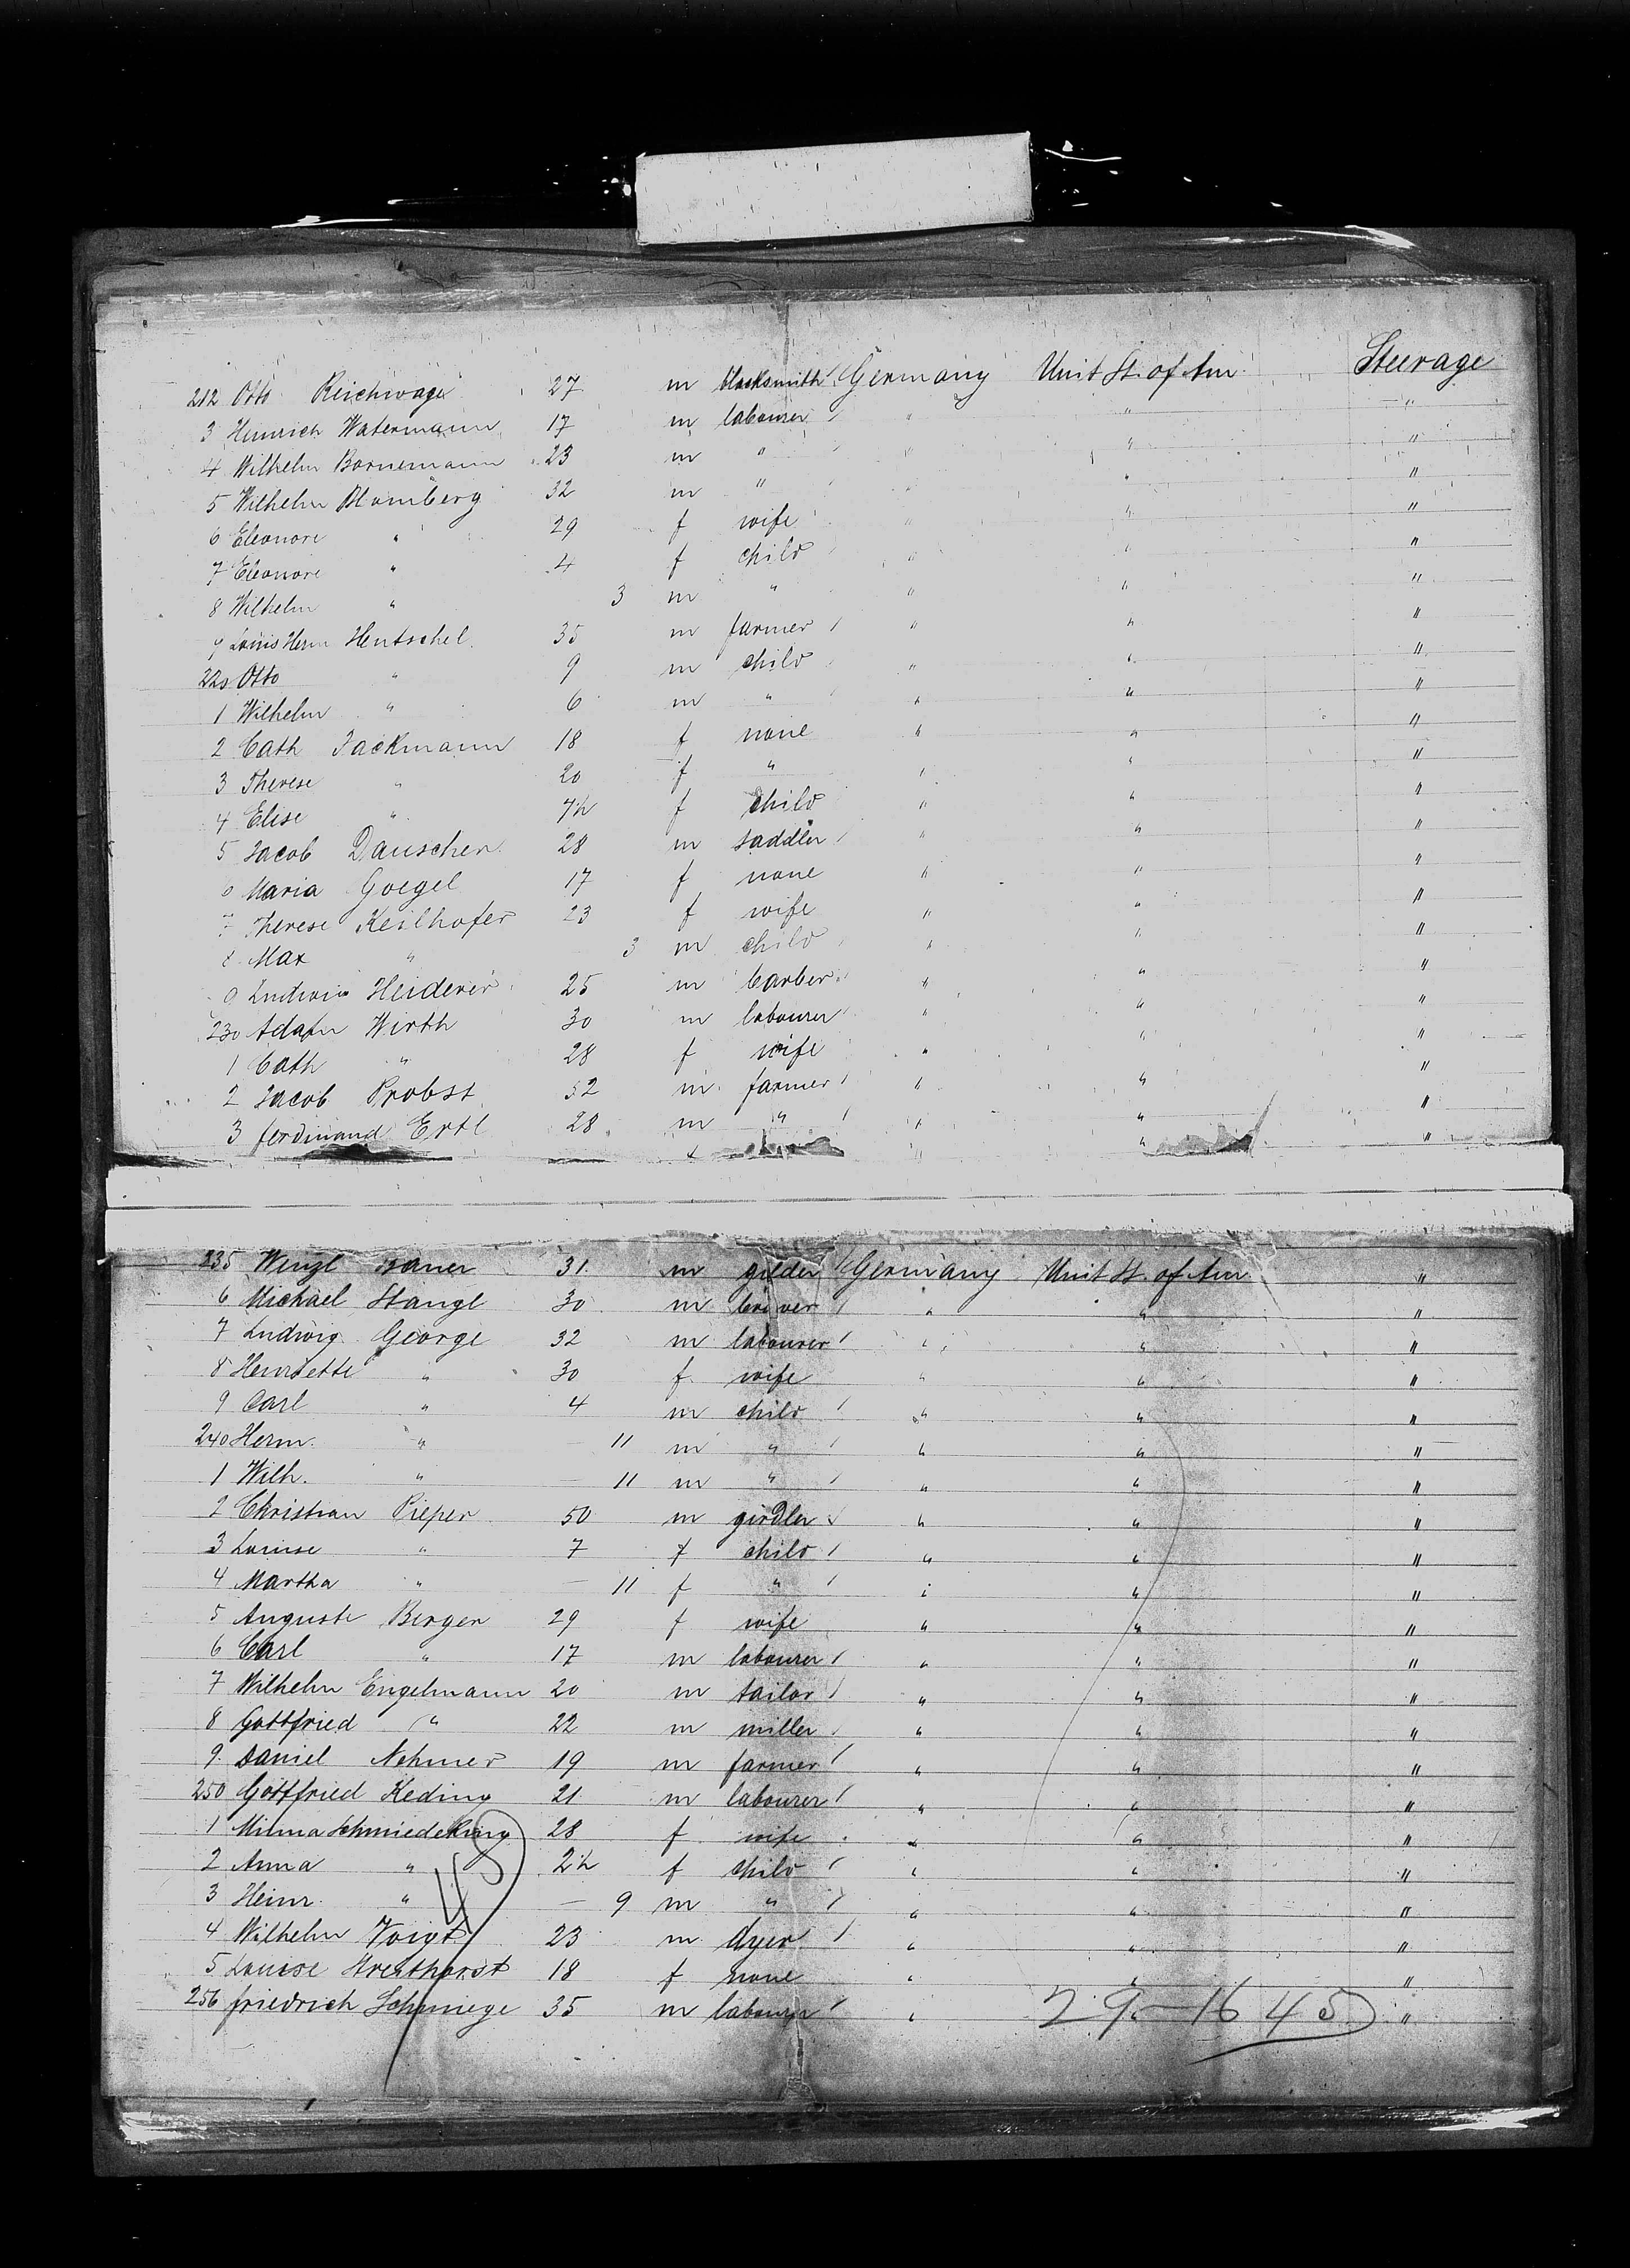 212 Otto Reichwage 27 m blacksmith Germany Unit St. of Am. Steerage
3 Heinrich Watermann 17 m labourer " " "
4 Wilhelm Bornemann 23 m " " " "
5 Wilhelm Blomberg 32 m " " " "
6 Eleonore " 29 f wife " " "
7 Eleonore " 4 f child " " "
8 Wilhelm " 3 m " " " "
9 Louis Herm Hentschel 35 m farmer " " "
220 Otto " 9 m child " " "
1 Wilhelm " 6 m " " " "
2 Cath Jackmann 18 f none " " "
3 Therese " 20 f " " " "
4 Elise " f child " " "
5 Jacob Dauscher 28 m saddler " " "
6 Maria Goegel 17 f none " " "
7 Therese Keilhofer 23 f wife " " "
8 Max " 3 m child " " "
9 Ludwig Heiderer 25 m barber " " "
230 Adam Wirth 30 m labourer " " "
1 Cath " 28 f wife " " "
2 Jacob Probst 52 m farmer " " "
3 ferdinand Ertl 28 m " " " "
" " "
235 Wenzl 31 m gilder Germany Unit St. of Am. "
6 Michael Stangl 30 m brewer " " "
7 Ludwig George 32 m labourer " " "
8 Henriette " 30 f wife " " "
9 Carl " 4 m child " " "
240 Herm. " — 11 m " " " "
1 Wilh. " — 11 m " " " "
2 Christian Pieper 50 m girdler " " "
3 Louise " 7 f child " " "
4 Martha " — 11 f " " " "
5 Auguste Berger 29 f wife " " "
6 Carl " 17 m labourer " " "
7 Wilhelm Engelmann 20 m tailor " " "
8 Gottfried " 22 m miller " " "
9. Daniel Nehmer 19 m farmer " " "
250 Gottfried Keding 21 m labourer " " "
1 Minna Schmiedeking 28 f wife " " "
2 Anna " f child " " "
3 Heinr. " — 9 m " " " "
4 Wilhelm Voigt 23 m dyer " " "
5 Louise Streithorst 18 f none " " "
256 friedrich Schmiege 35 m labourer " "
29 — 16 45